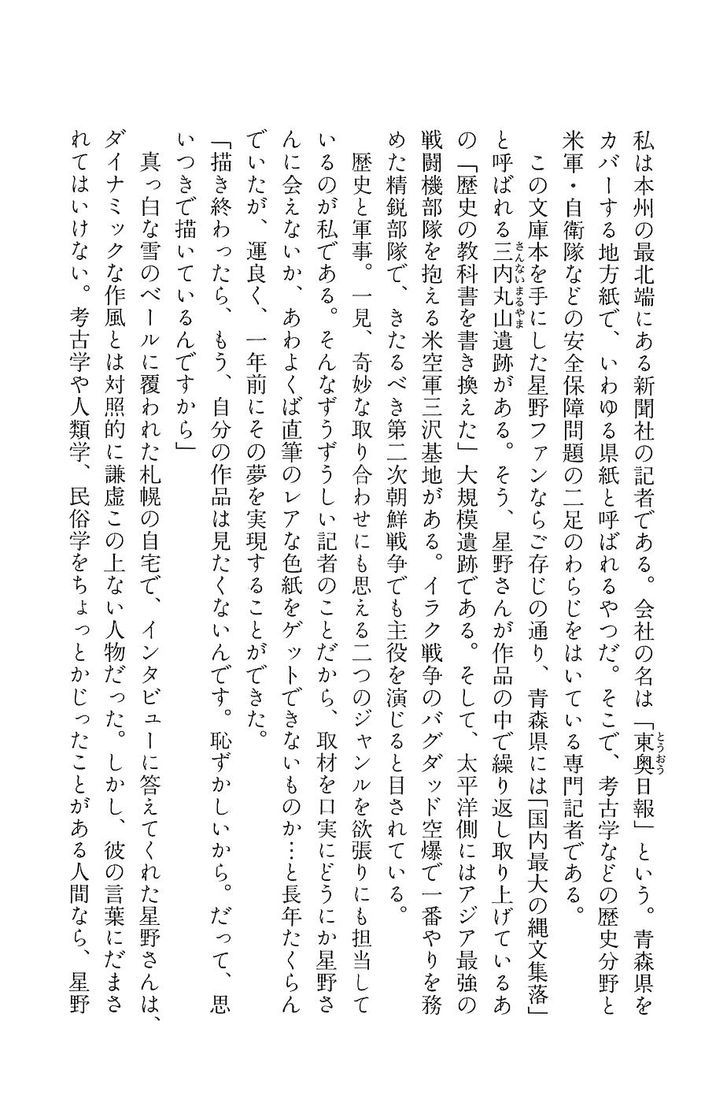 私は本州の最北端にある新聞社の記者である。会社の名は「東奥日報」という。青森県を
カバーする地方紙で、いわゆる県紙と呼ばれるやつだ。そこで、考古学などの歴史分野と
米軍・自衛隊などの安全保障問題の二足のわらじをはいている専門記者である。
この文庫本を手にした星野ファンならご存じの通り、青森県には「国内最大の縄文集落」
と呼ばれる三内丸山遺跡がある。そう、星野さんが作品の中で繰り返し取り上げているあ
の「歴史の教科書を書き換えた」大規模遺跡である。そして、太平洋側にはアジア最強の
戦闘機部隊を抱える米空軍三沢基地がある。イラク戦争のバグダッド空爆で一番やりを務
めた精鋭部隊で、きたるべき第二次朝鮮戦争でも主役を演じると目されている。
歴史と軍事。一見、奇妙な取り合わせにも思える二つのジャンルを欲張りにも担当して
いるのが私である。そんなずうずうしい記者のことだから、取材を口実にどうにか星野さ
んに会えないか、あわよくば直筆のレアな色紙をゲットできないものか…と長年たくらん
でいたが、運良く、一年前にその夢を実現することができた。
「描き終わったら、もう、自分の作品は見たくないんです。恥ずかしいから。だって、思
いつきで描いているんですから」
真っ白な雪のベールに覆われた札幌の自宅で、インタビューに答えてくれた星野さんは、
ダイナミックな作風とは対照的に謙虚この上ない人物だった。しかし、彼の言葉にだまさ
れてはいけない。考古学や人類学、民俗学をちょっとかじったことがある人間なら、星野